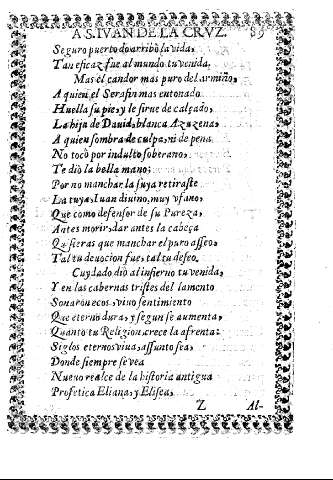 A S. IVAN DE LA CRVZ. 89
Seguro puerto do arribò la vida,
Tan eficaz fue al mundo tu venida.
Mas el candor mas puro del armiño,
A quien el Serafin mas entonado
Huella su pie, y le sirue de calçado,
La hija de Dauid, blanca Azuzena,
A quien sombra de culpa, ni de pena
No tocò por indulto soberano,
Te diò la bella mano;
Por no manchar la suya retiraste
La tuya, Iuan diuino, muy vfano,
Que como defensor de su Pureza,
Antes morir, dar antes la cabeça
Quisieras que manchar el puro asseo,
Tal tu deuocion fue, tal tu deseo.
Cuydado diò al infierno tu venida,
Y en las cabernas tristes del lamento
Sonaron ecos, viuo sentimiento
Que eterno dura, y segun se aumenta,
Quanto tu Religion crece la afrenta:
Siglos eternos viua, assunto sea,
Donde siempre se vea
Nueuo realce de la historia antigua
Profetica Eliana, y Elisea,
Z Al-